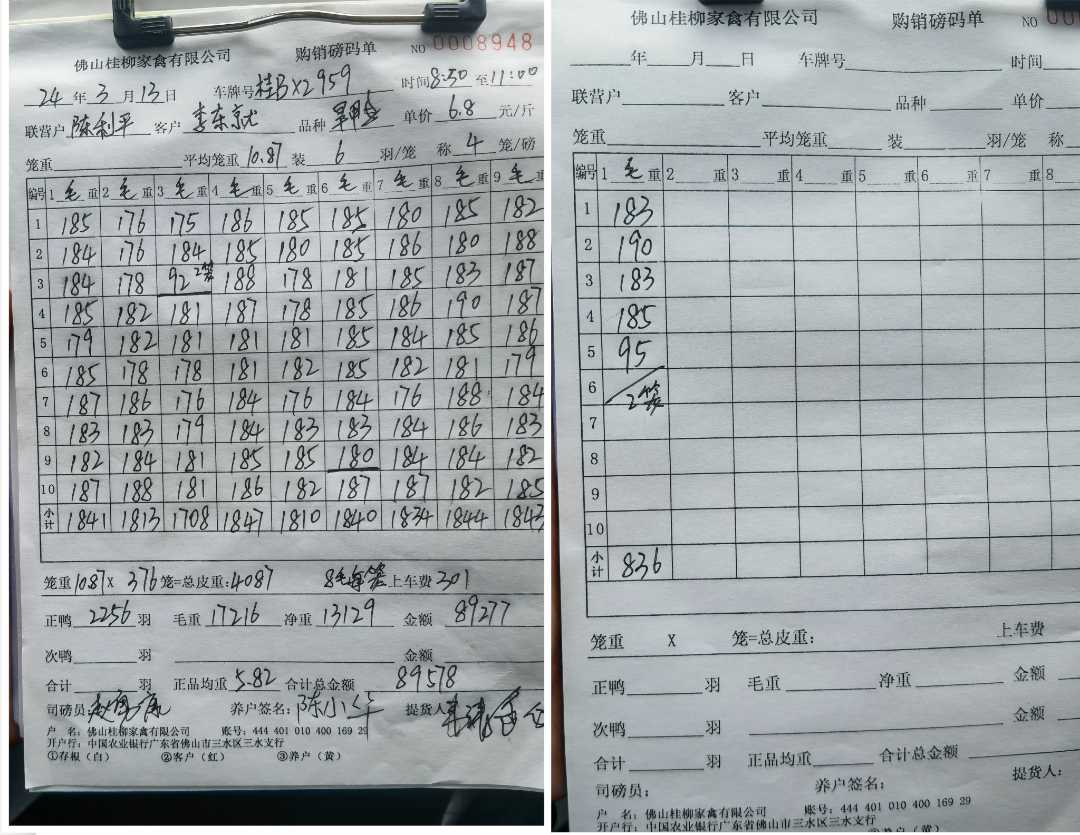 佛山桂柳家禽有限公司 购销磅码单 NO 0008948
24 年 3 月 13 日 车牌号 桂BX2959 时间 8:50 至 11:00
联营户 陈利平 客户 李东京 品种 单价 6.8 元/斤
笼重 平均笼重 10.87 装 6 羽/笼 称 4 笼/磅
编号 1 毛 重 2 毛 重 3 毛 重 4 毛 重 5 毛 重 6 毛 重 7 毛 重 8 毛 重 9 毛 重
1 185 176 175 186 185 185 180 185 182
2 184 176 184 185 180 185 186 180 188
3 184 178 92 2笼 188 178 181 185 183 187
4 185 182 181 187 178 185 186 190 187
5 179 182 181 181 181 185 184 185 186
6 185 178 178 181 182 185 182 181 179
7 187 186 176 184 176 184 176 188 184
8 183 183 179 184 183 183 184 186 183
9 182 184 181 185 185 180 184 184 182
10 187 188 181 186 182 187 187 182 185
小计 1841 1813 1708 1847 1810 1840 1834 1844 1843
笼重 1087 X 376 笼=总皮重: 4087 上车费 301
正鸭 2256 羽 毛重 17216 净重 13129 金额 89277
次鸭 羽 金额
合计 羽 正品均重 5.82 合计总金额 89578
司磅员: 养户签名: 陈小华 提货人
户 名: 佛山桂柳家禽有限公司 账号: 444 401 010 400 169 29
开户行: 中国农业银行广东省佛山市三水区三水支行
①存根(白) ②客户(红) ③养户(黄)
佛山桂柳家禽有限公司 购销磅码单 NO 00
年 月 日 车牌号 时间
联营户 客户 品种 单价
笼重 平均笼重 装 羽/笼 称
编号 1 毛 重 2 重 3 重 4 重 5 重 6 重 7 重 8
1 183
2 190
3 183
4 185
5 95
6 2笼
7
8
9
10
小计 836
笼重 X 笼=总皮重: 上车费
正鸭 羽 毛重 净重 金额
次鸭 羽 金额
合计 羽 正品均重 合计总金额
司磅员: 养户签名: 提货人:
户 名: 佛山桂柳家禽有限公司 账号: 444 401 010 400 169 29
开户行: 中国农业银行广东省佛山市三水区三水支行